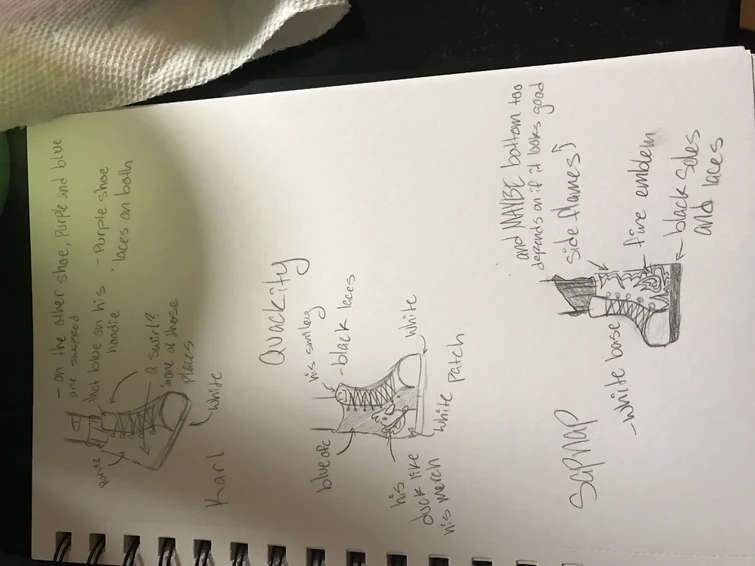 - on the other shoe, purple and blue
are swapped
that blue on his
hoodie
- Purple shoe
laces on both
a swirl?
in one of these
places
white
Karl
Quackity
his smiley
- black laces
blue
white
white patch
his
duck like
his merch
Sapnap
and MAYBE bottom too
depends on if it looks good
side flames
fire emblem
black soles
and laces
- white base